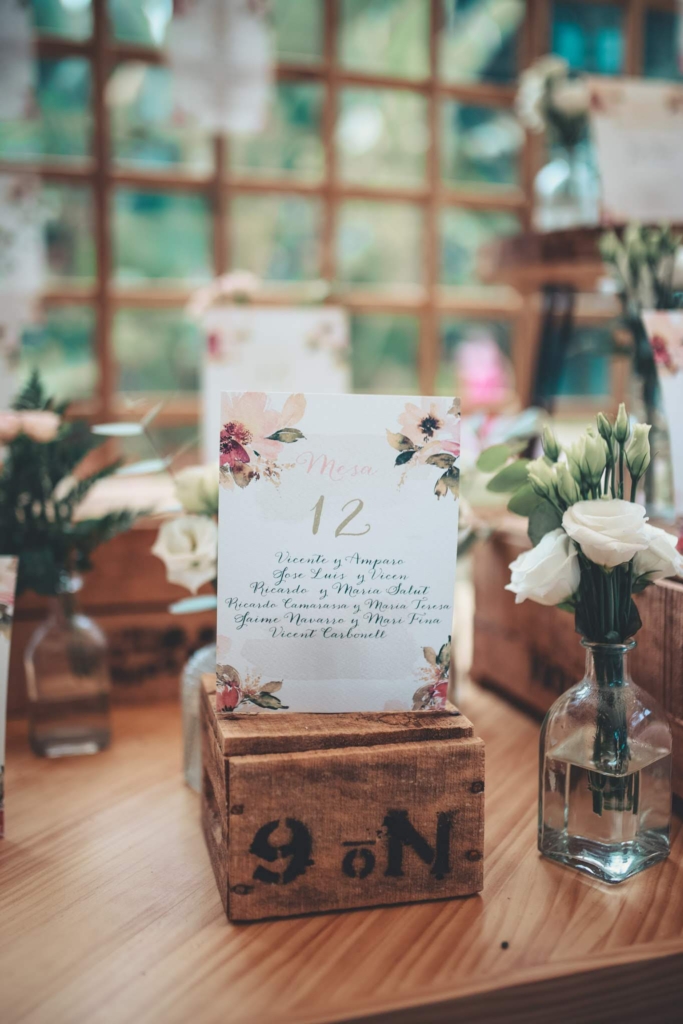 Mesa
12
Vicente y Amparo
Jose Luis y Vicen
Ricardo y Maria Salut
Ricardo Camarassa y Maria Teresa
Jaime Navarro y Mari Fina
Vicent Carbonell
9 ōN